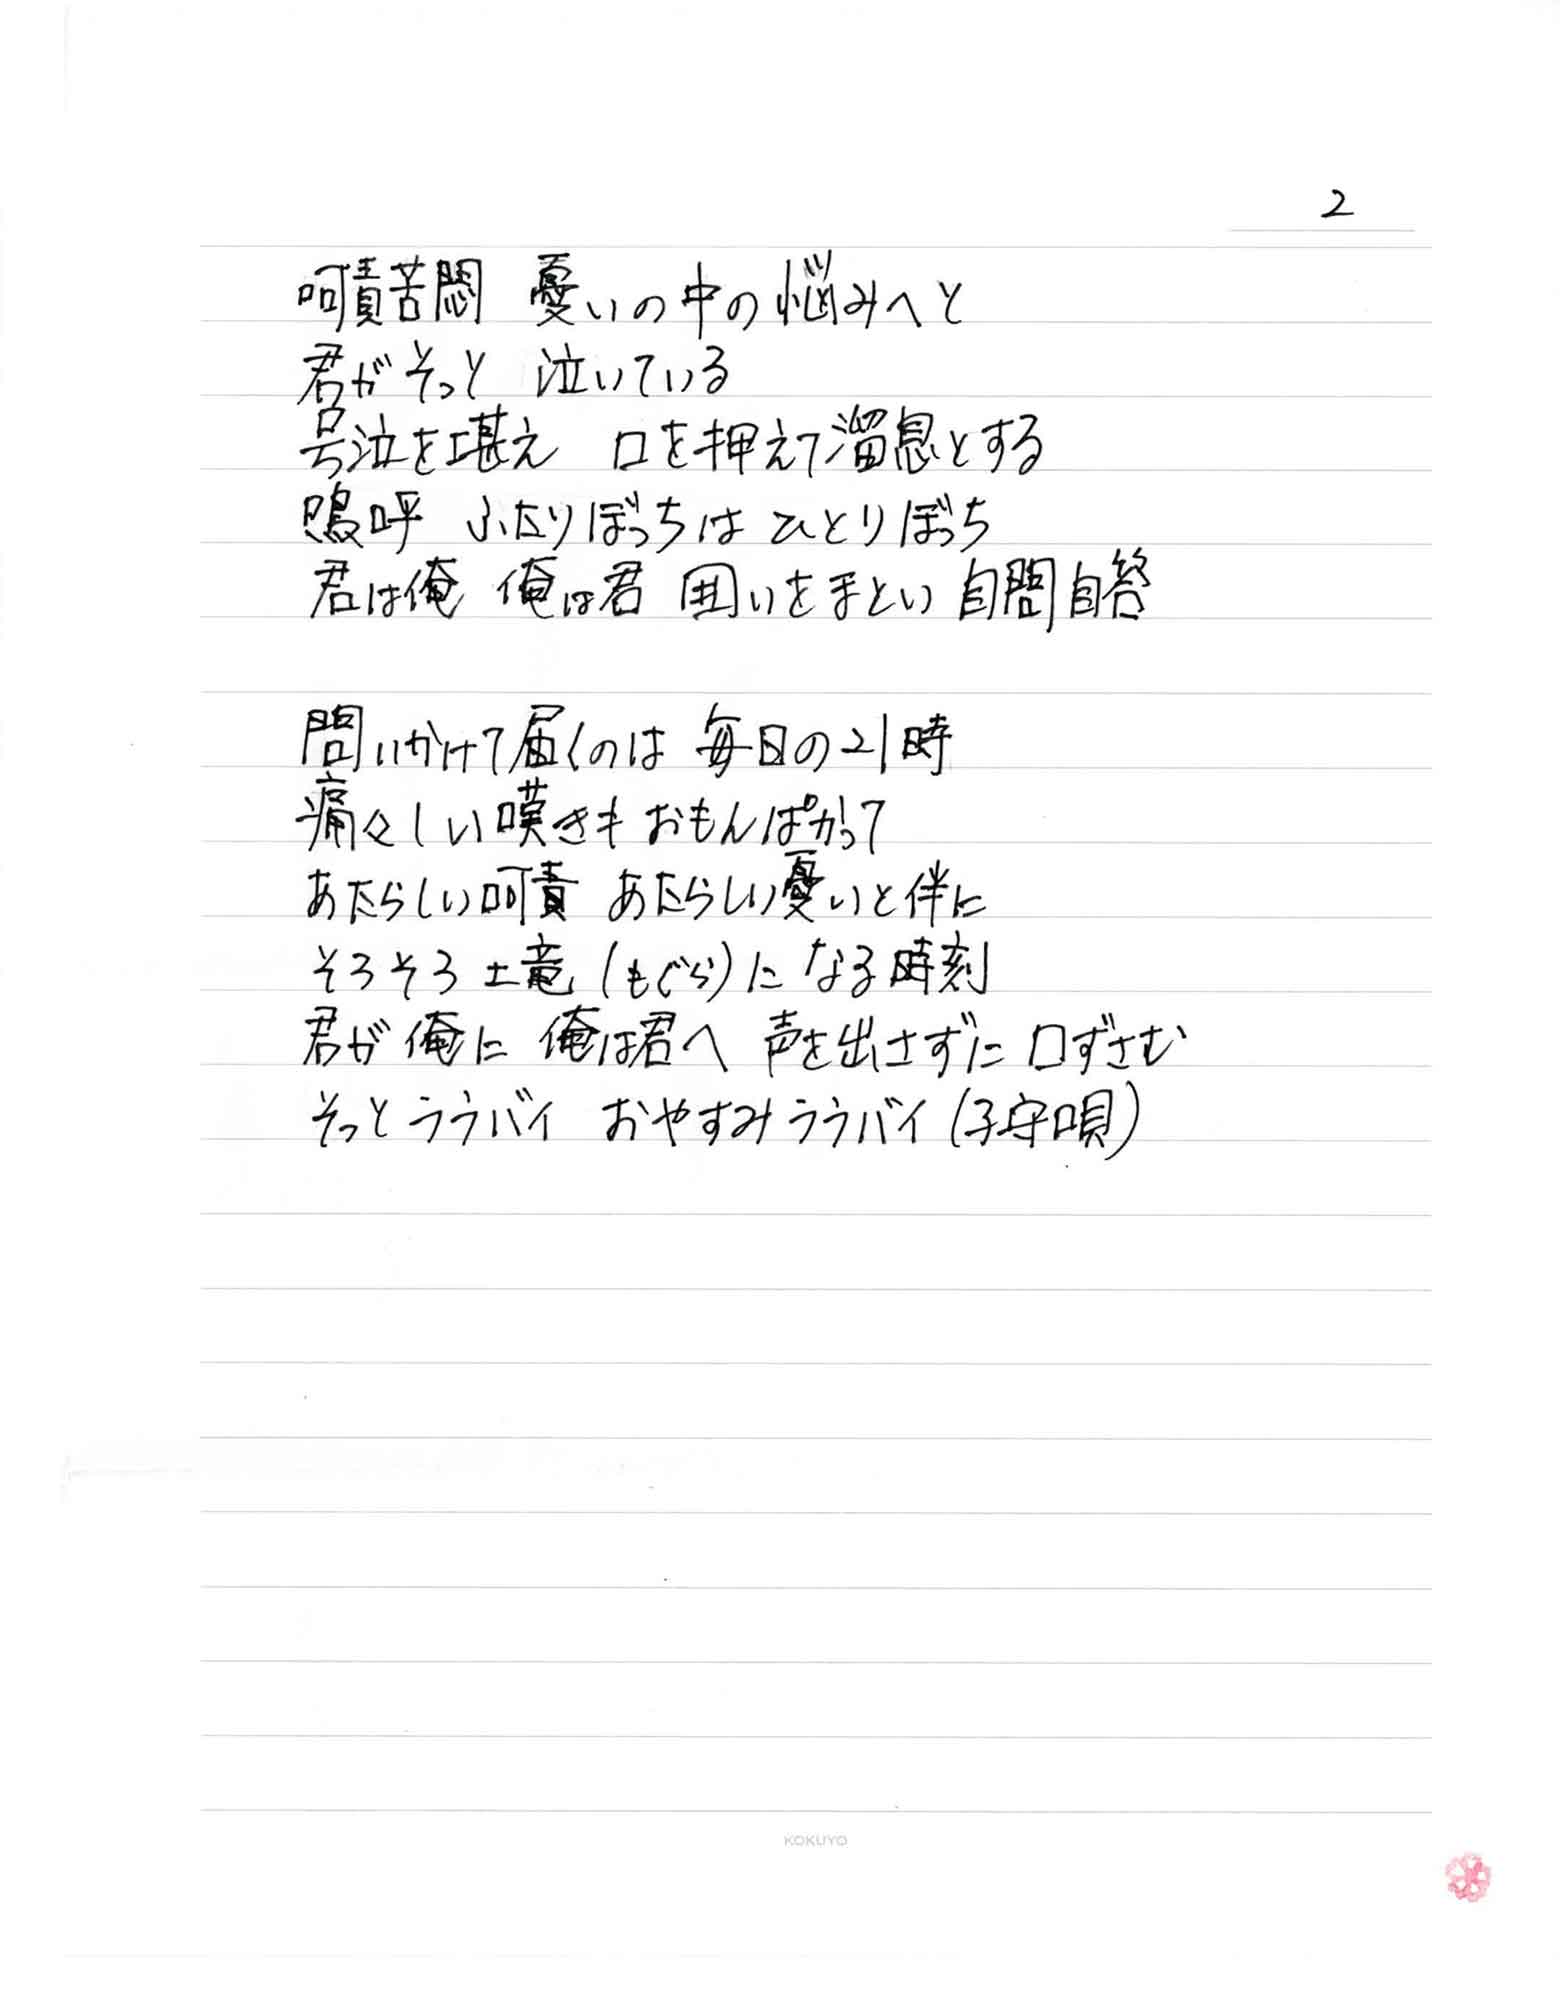 2
呵責苦悶 憂いの中の悩みへと
君がそっと 泣いている
号泣を堪え 口を押えて溜息とする
嗚呼 ふたりぼっちは ひとりぼっち
君は俺 俺は君 囲いをまとい 自問自答
問いかけて届くのは 毎日の21時
痛々しい嘆きも おもんぱかって
あたらしい呵責 あたらしい憂いと伴に
そろそろ土竜(もぐら)に なる時刻
君が俺に 俺は君へ 声を出さずに 口ずさむ
そっとララバイ おやすみララバイ(子守唄)
KOKUYO